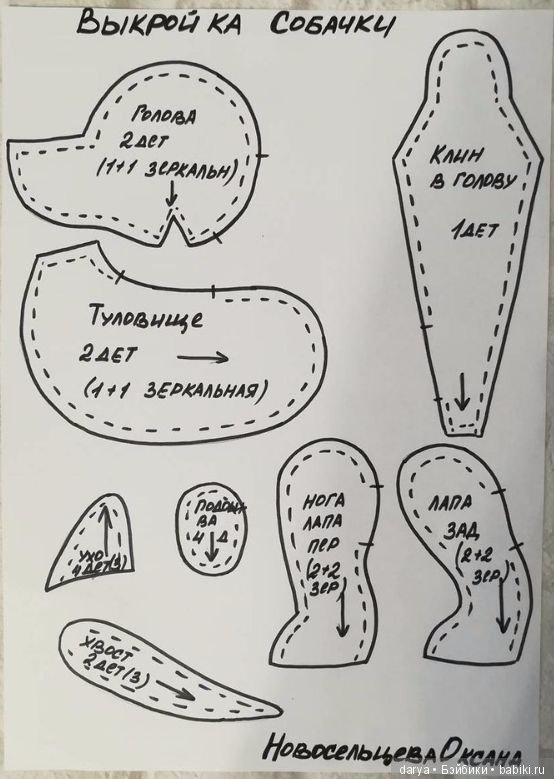 Выкройка собачки
Голова
2 дет
(1+1 зеркальн)
Клин
в голову
1 дет
Туловище
2 дет
(1+1 зеркальная)
Ухо
4 дет(з)
Подош
ва
4 д
Нога
лапа
пер
(2+2
зер)
Лапа
зад
(2+2
зер)
Хвост
2 дет(з)
Новосельцева Оксана
darya • Бэйбики • babiki.ru